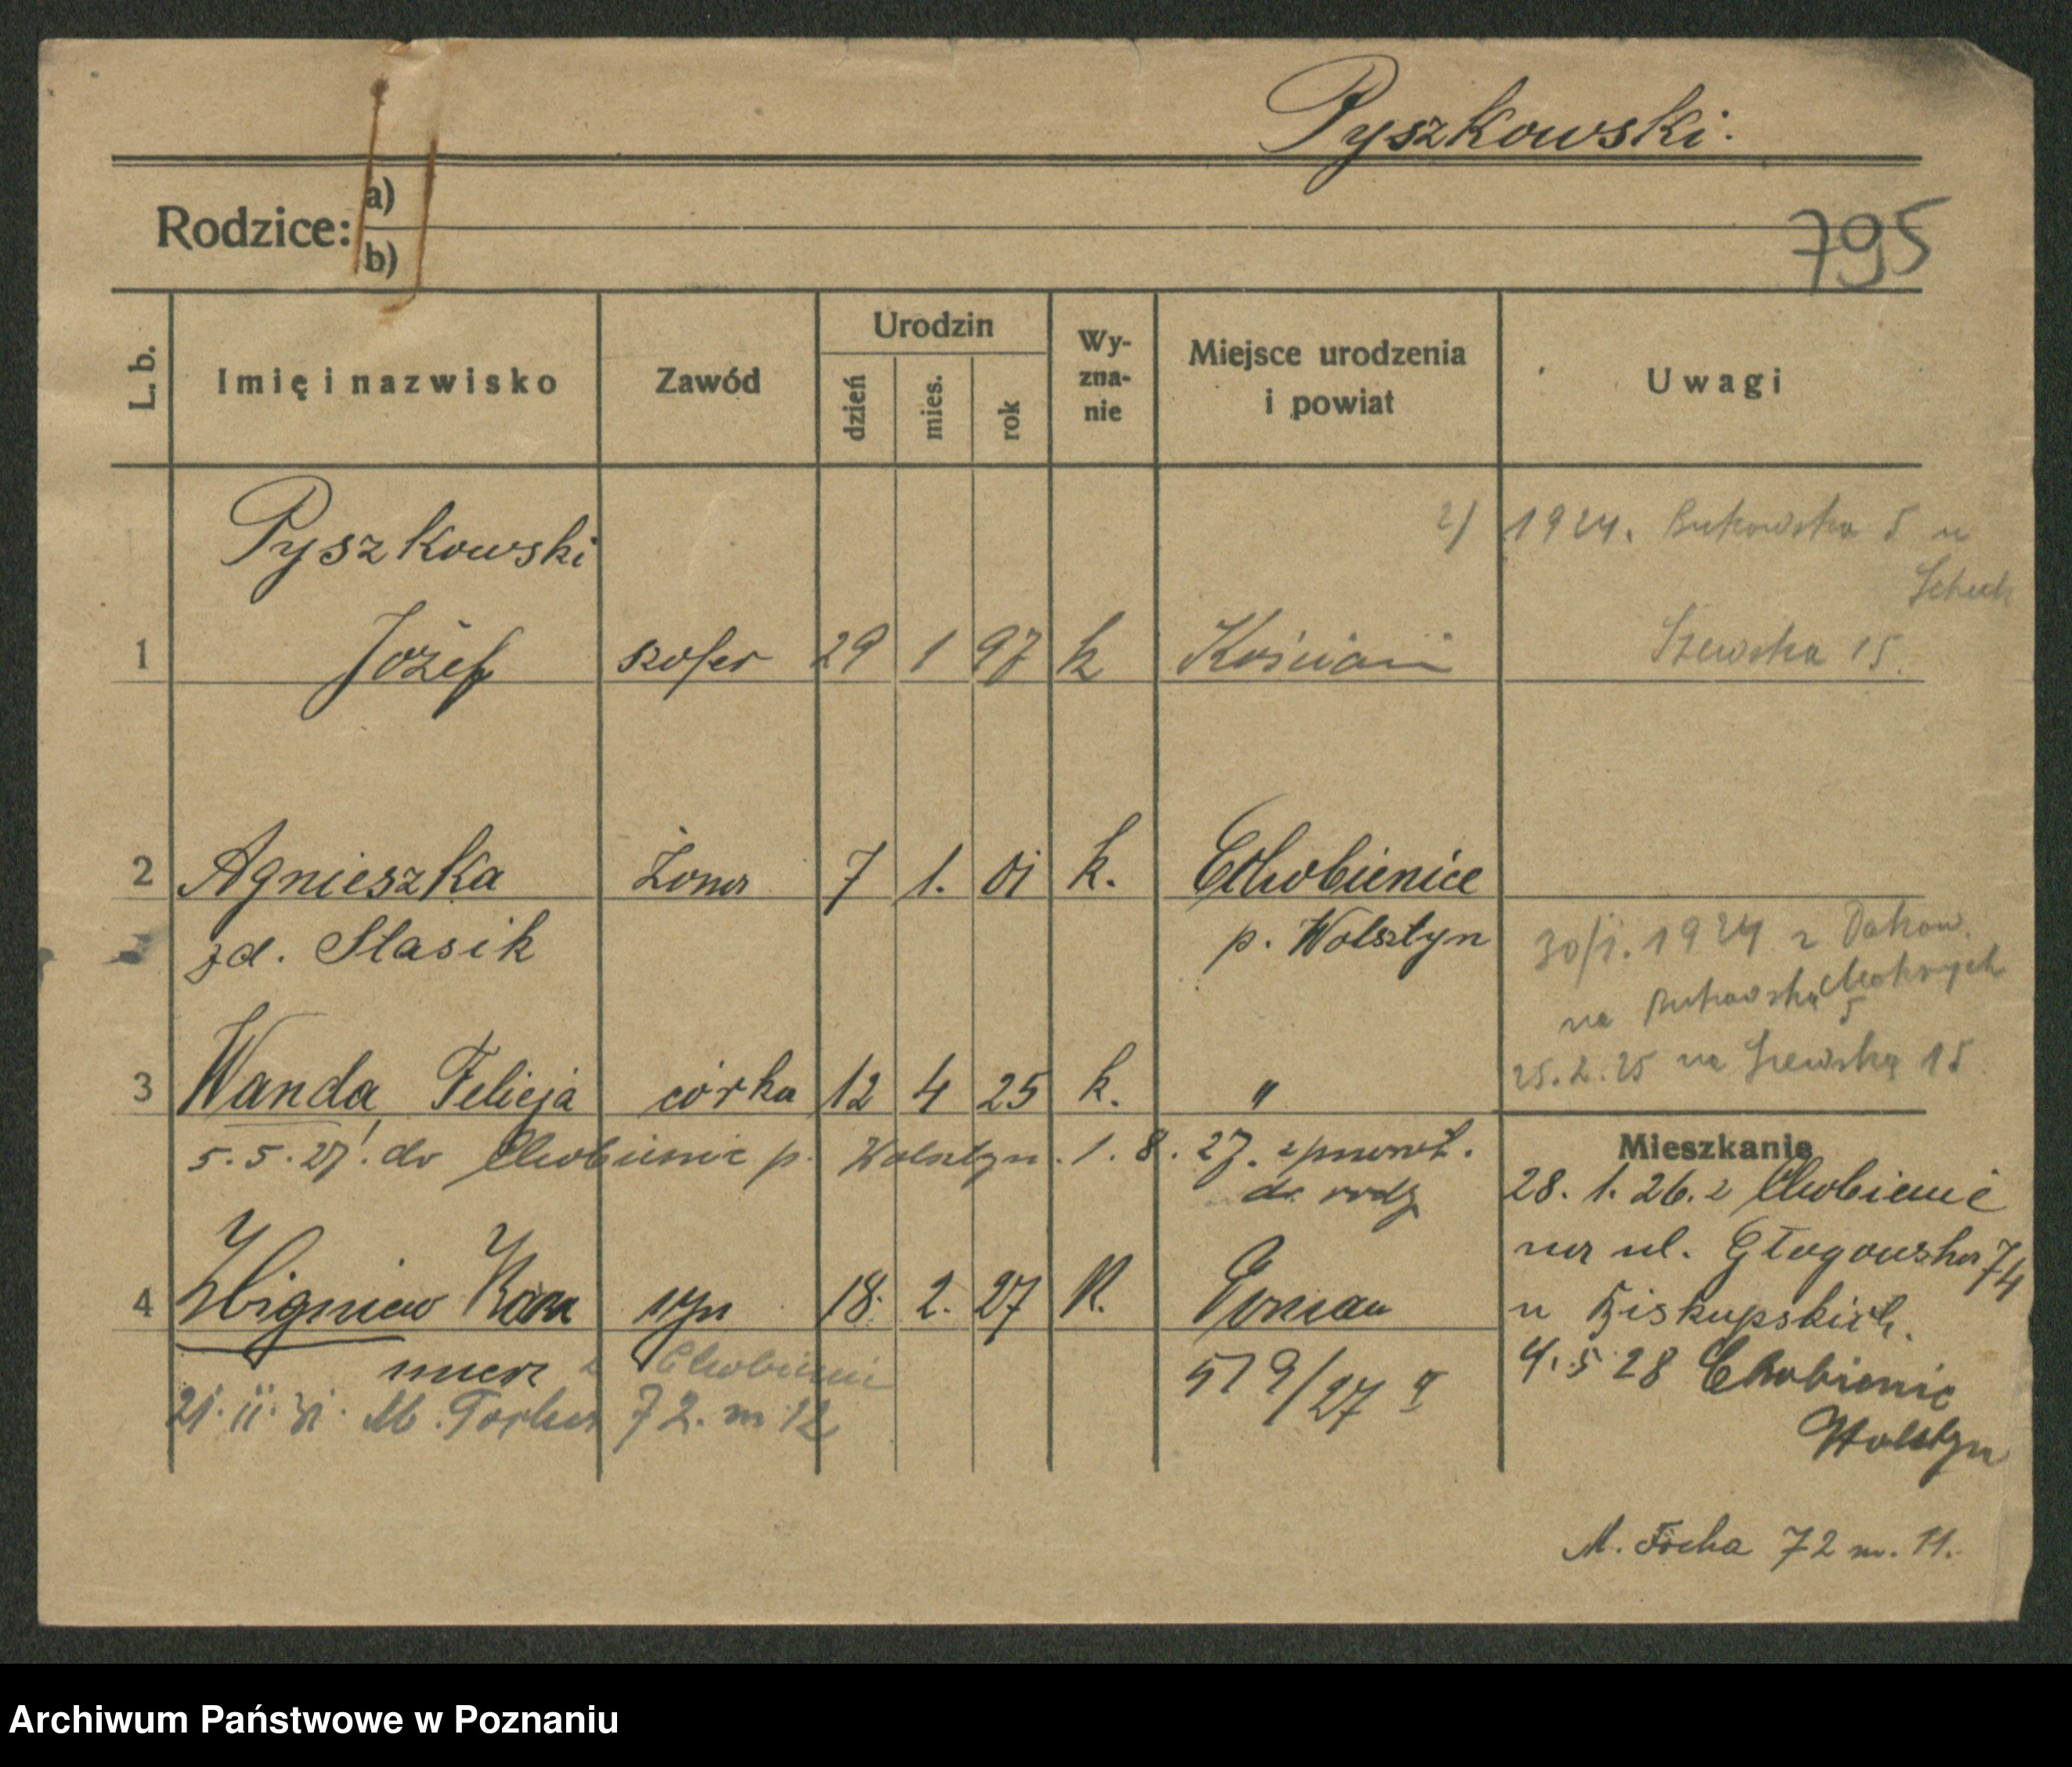 Pyszkowski.
795
Rodzice: a)
b)
L. b. Imię i nazwisko Zawód Urodzin dzień mies. rok Wy-zna-nie Miejsce urodzenia i powiat Uwagi
Pyszkowski 2) 1924. Bukowska 5 u
1 Józef szofer 29 1 97 k Kościan Szewska 15.
2 Agnieszka żona 7 1. 01 k. Chobienice
zd. Stasik p. Wolsztyn
30/1. 1924 z Dakow.
Mokrych
na Bukowską 5
3 Wanda, Felicja córka 12 4 25 k. "
25.2.25 na Szewską 15
5.5.27. do Chobienic p. Wolsztyn. 1. 8. 27. z powrot.
do rodz
Mieszkanie
28. 1. 26. z Chobienic
na ul. Głogowska 74
4 Zbigniew syn 18. 2. 27 K. Poznań
u Biskupskich.
z Chobienic
519/27
4.5 28 Chobienic
Wolsztyn
21. 11. 31. M. 72. m 12
M. Focha 72 m. 11.
Archiwum Państwowe w Poznaniu